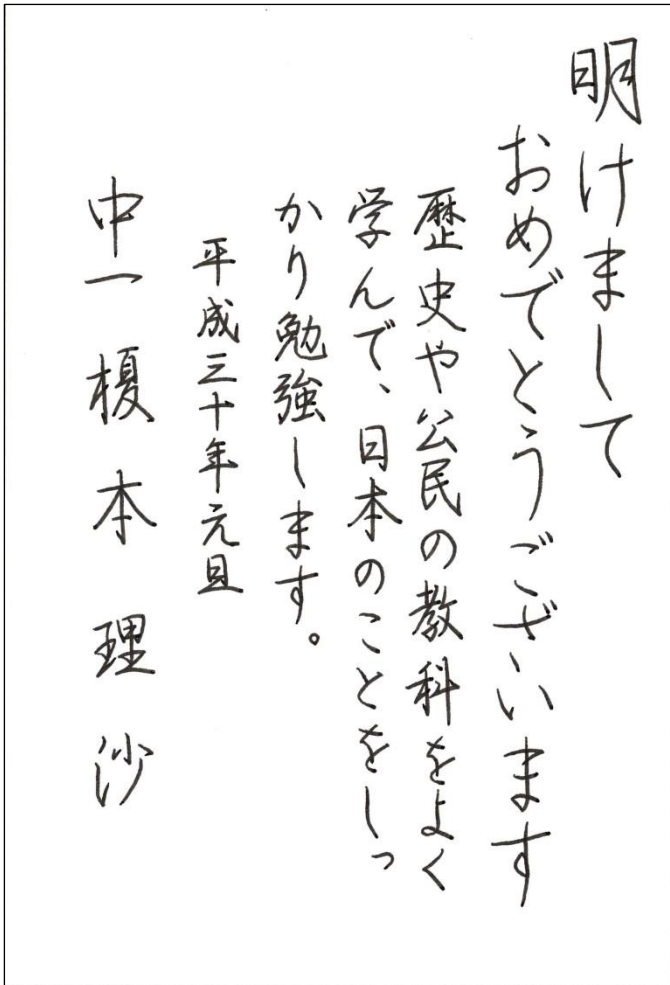 明けまして
おめでとうございます
歴史や公民の教科をよく
学んで、日本のことをしっ
かり勉強します。
平成三十年元旦
中一 榎本 理沙